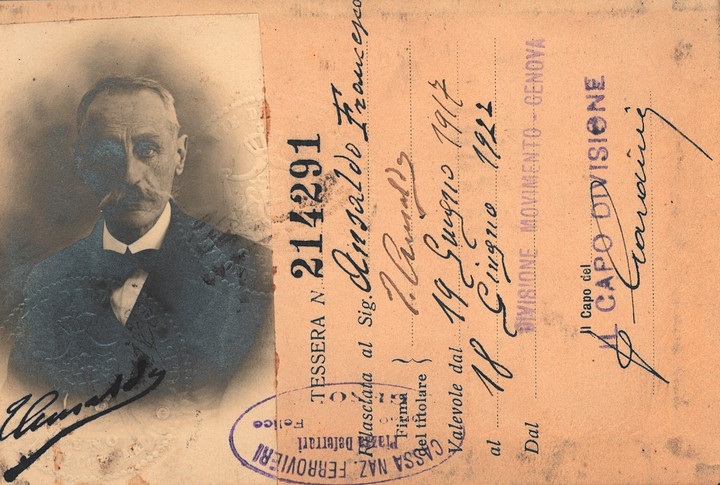 TESSERA N 214291
Rilasciata al Sig. Ansaldo Francesco
Firma
del titolare } F. Ansaldo
Valevole dal 19 Giugno 1917
al 18 Giugno 1922
Dal DIVISIONE MOVIMENTO - GENOVA
Il Capo del
IL CAPO DIVISIONE
F. Ansaldo
CASSA NAZ. FERROVIERI
Piazza Deferrari
Felice